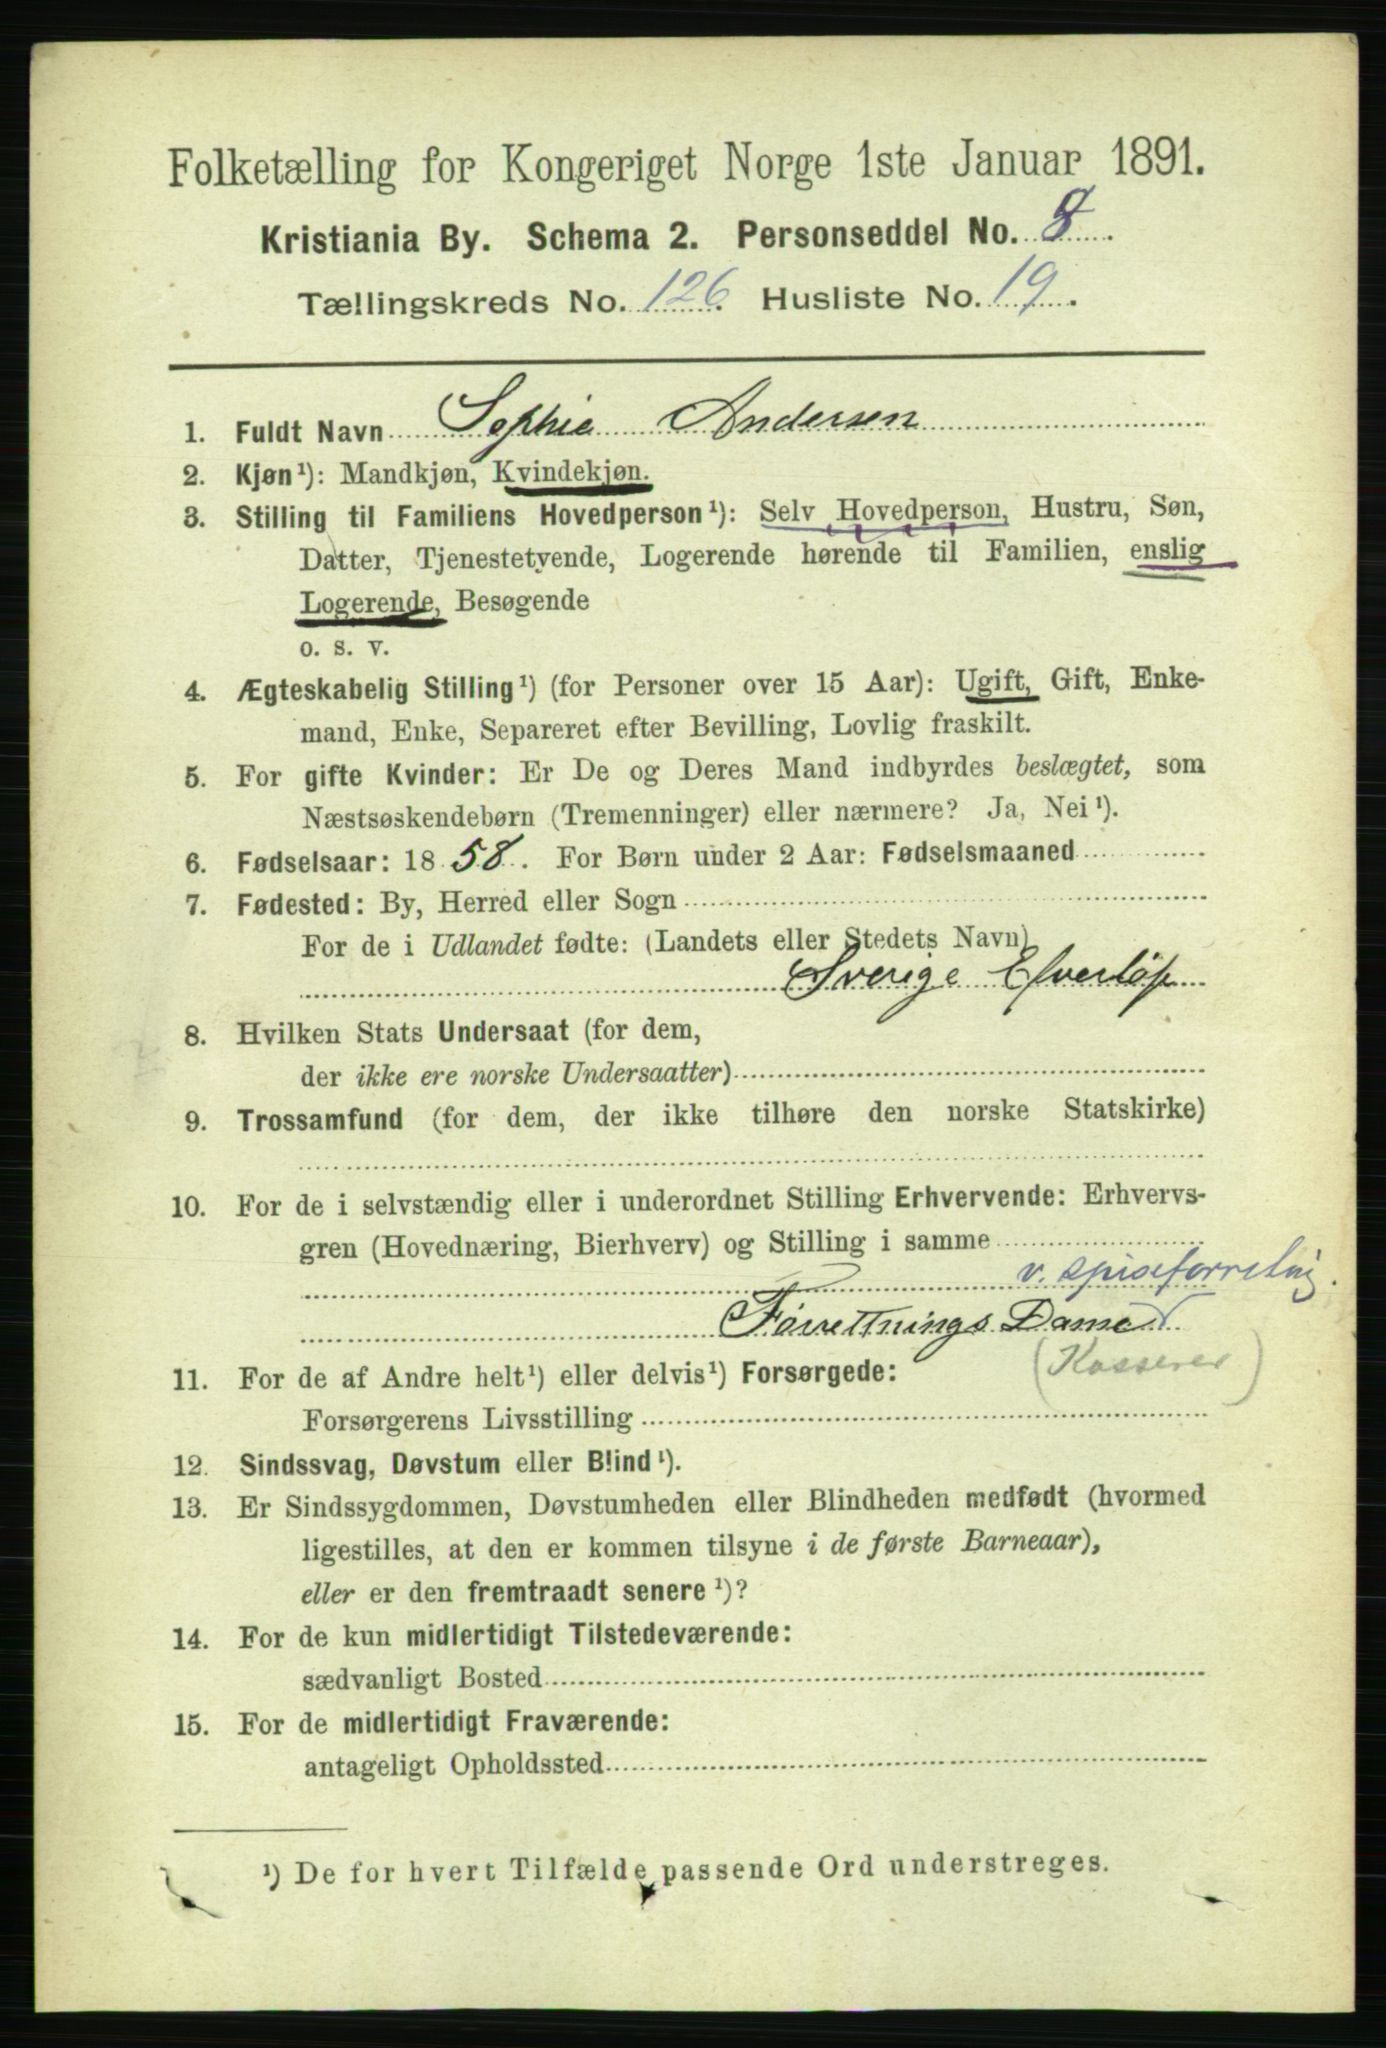 Folketælling for Kongeriget Norge 1ste Januar 1891.
Kristiania By. Schema 2. Personseddel No. 8.
Tællingskreds No. 126. Husliste No. 19.
1. Fuldt Navn Sophie Andersen
2. Kjøn¹): Mandkjøn, Kvindekjøn.
3. Stilling til Familiens Hovedperson¹): Selv Hovedperson, Hustru, Søn,
Datter, Tjenestetyende, Logerende hørende til Familien, enslig
Logerende, Besøgende
o. s. v.
4. Ægteskabelig Stilling¹) (for Personer over 15 Aar): Ugift, Gift, Enke-
mand, Enke, Separeret efter Bevilling, Lovlig fraskilt.
5. For gifte Kvinder: Er De og Deres Mand indbyrdes beslægtet, som
Næstsøskendebørn (Tremenninger) eller nærmere? Ja, Nei¹).
6. Fødselsaar: 1858. For Børn under 2 Aar: Fødselsmaaned
7. Fødested: By, Herred eller Sogn
For de i Udlandet fødte: (Landets eller Stedets Navn)
Sverige Efverlöf
8. Hvilken Stats Undersaat (for dem,
der ikke ere norske Undersaatter)
9. Trossamfund (for dem, der ikke tilhøre den norske Statskirke)
10. For de i selvstændig eller i underordnet Stilling Erhvervende: Erhvervs-
gren (Hovednæring, Bierhverv) og Stilling i samme
v. spiseforretning.
Forrettnings Dame
(Kasserer)
11. For de af Andre helt¹) eller delvis¹) Forsørgede:
Forsørgerens Livsstilling
12. Sindssvag, Døvstum eller Blind¹).
13. Er Sindssygdommen, Døvstumheden eller Blindheden medfødt (hvormed
ligestilles, at den er kommen tilsyne i de første Barneaar),
eller er den fremtraadt senere¹)?
14. For de kun midlertidigt Tilstedeværende:
sædvanligt Bosted
15. For de midlertidigt Fraværende:
antageligt Opholdssted
¹) De for hvert Tilfælde passende Ord understreges.